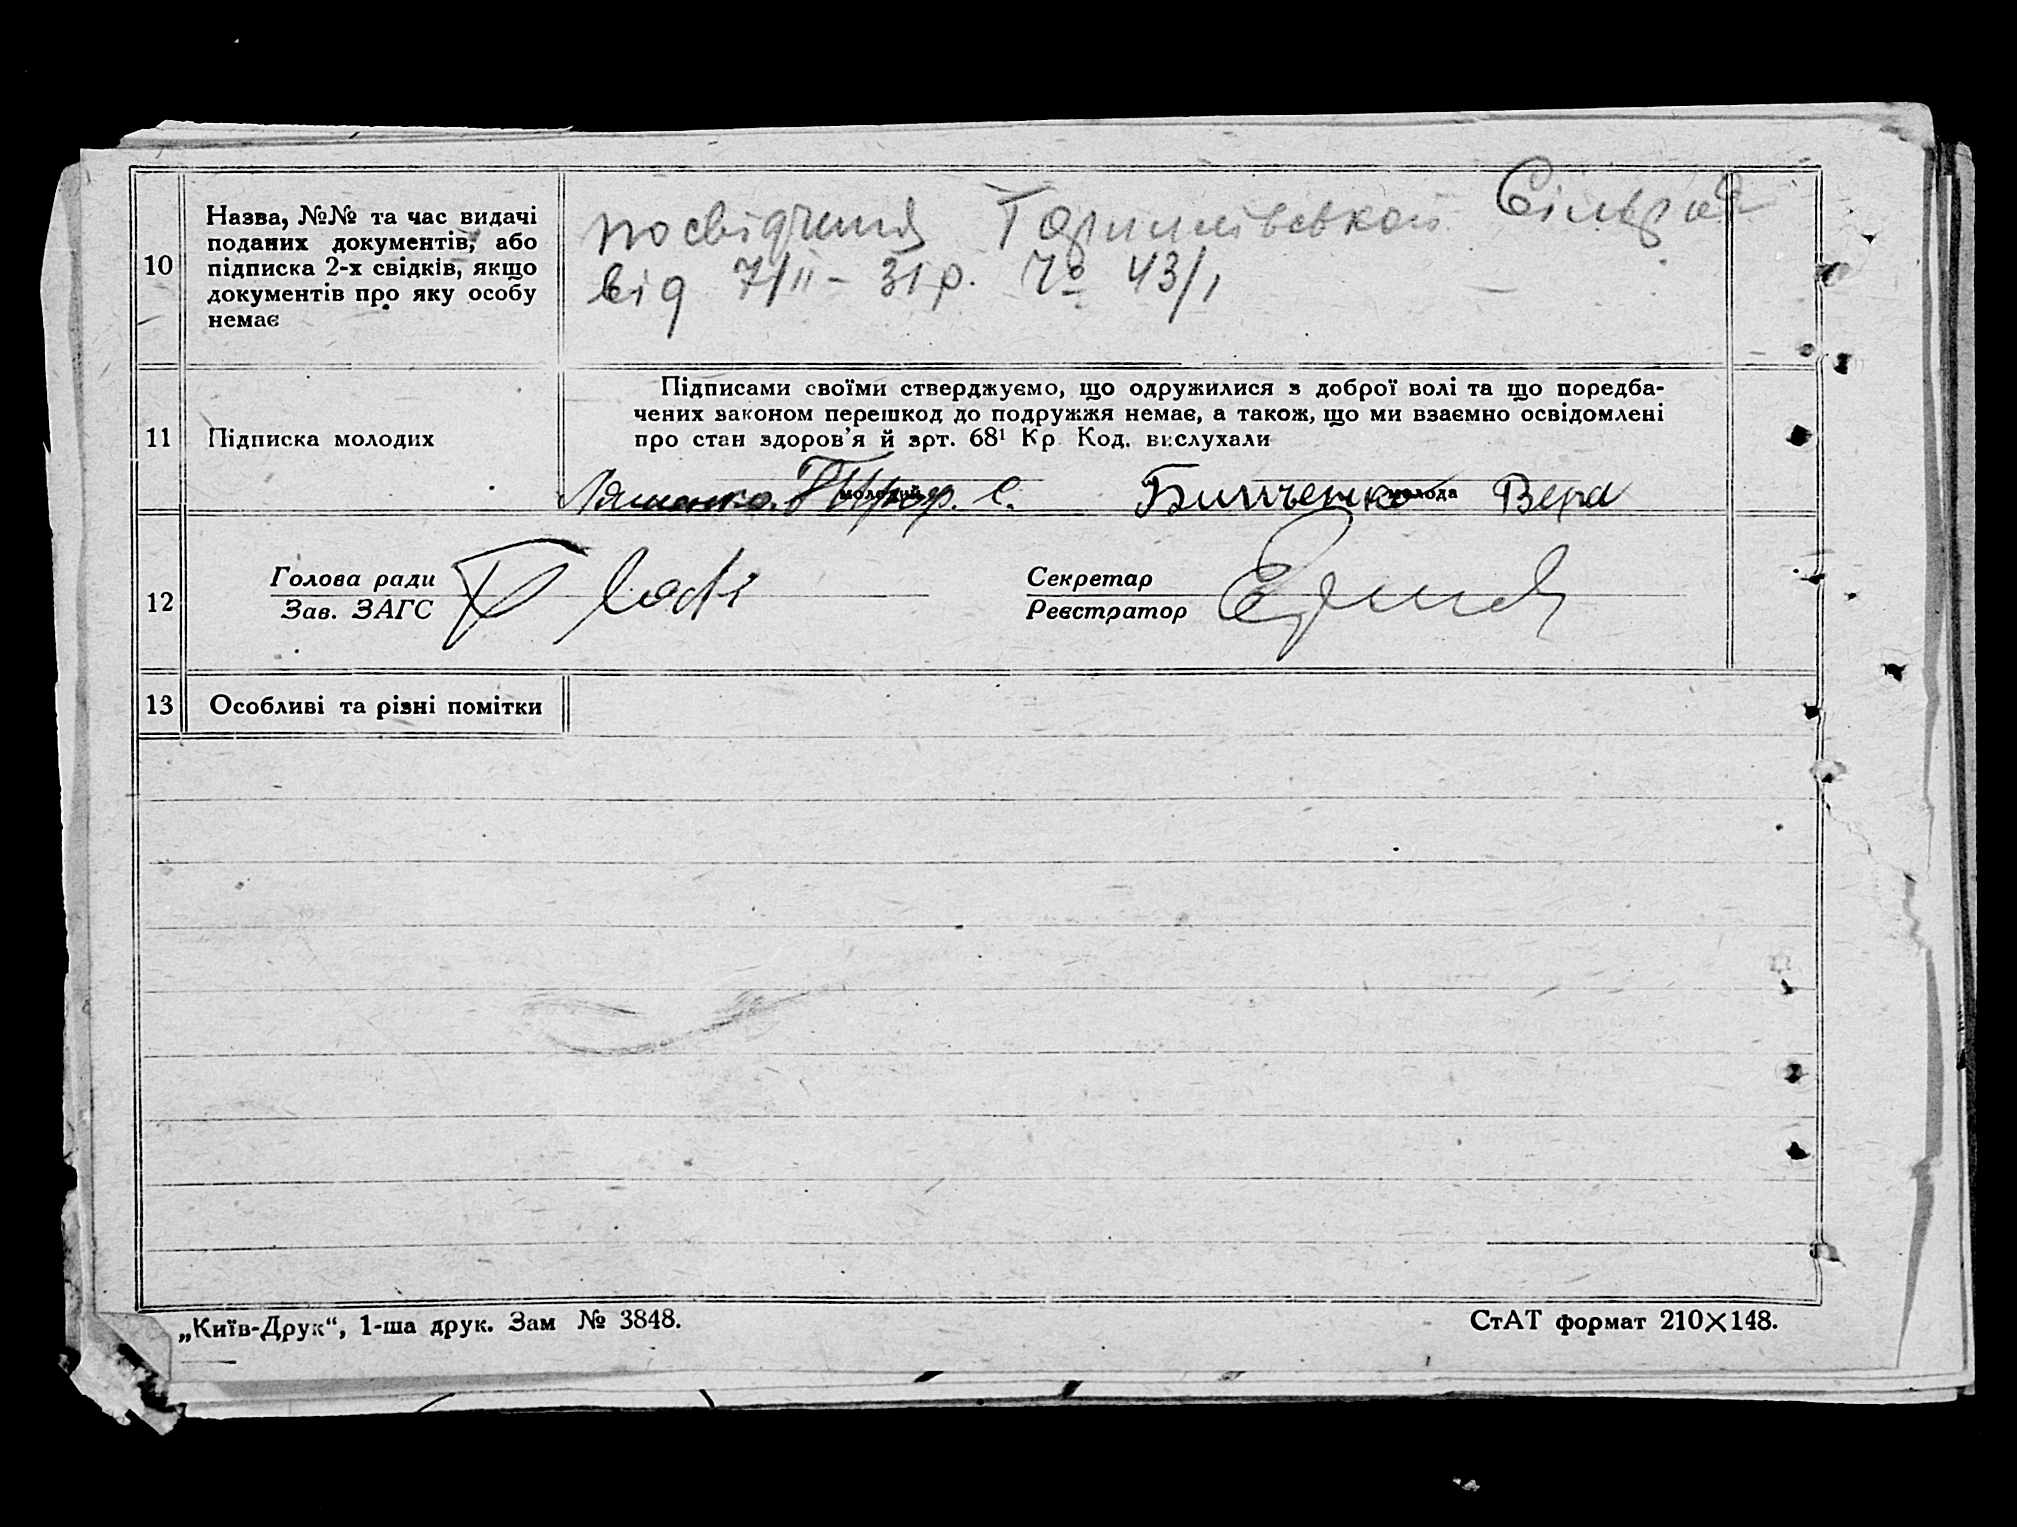 10
Назва, №№ та час видачі
поданих документів, або
підписка 2-х свідків, якщо
документів про яку особу
немає
посвідчення Сільради
від 7/II - 31 р. № 43/1
11
Підписка молодих
Підписами своїми стверджуємо, що одружилися з доброї волі та що поредба-
чених законом перешкод до подружжя немає, а також, що ми взаємно освідомлені
про стан здоров'я й арт. 68¹ Кр. Код. вислухали
Ляшенко С.
молодий
Вера
молода
12
Голова ради
Зав. ЗАГС
Секретар
Реєстратор
13
Особливі та різні помітки
„Київ-Друк“, 1-ша друк. Зам № 3848.
СтАТ формат 210×148.